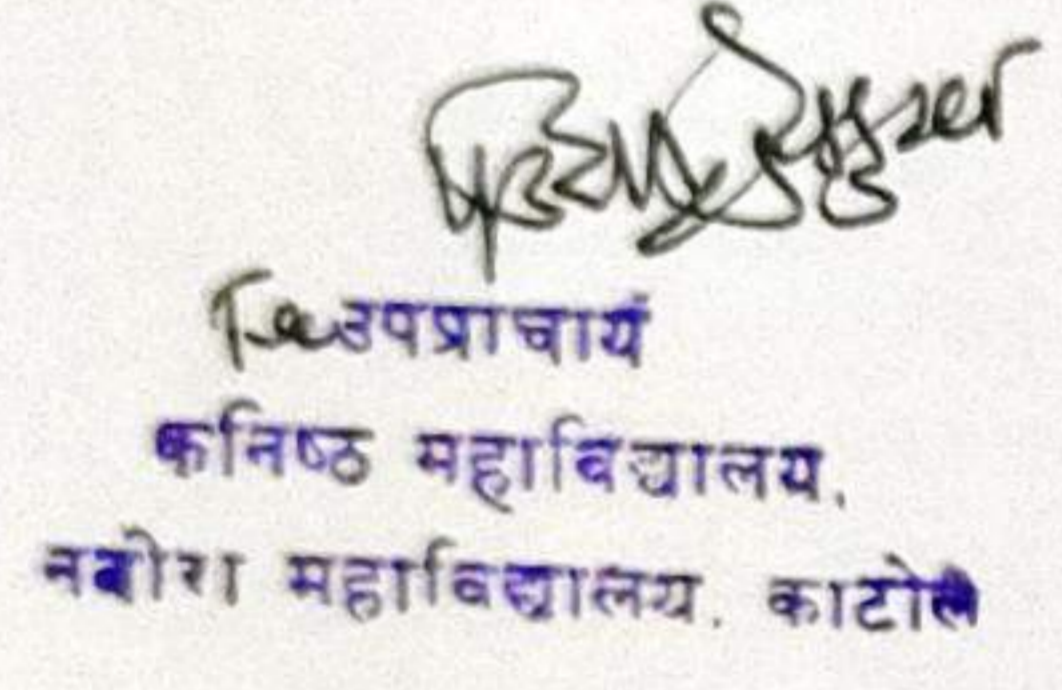 उपप्राचार्य
कनिष्ठ महाविद्यालय,
नबीरा महाविद्यालय. काटोल